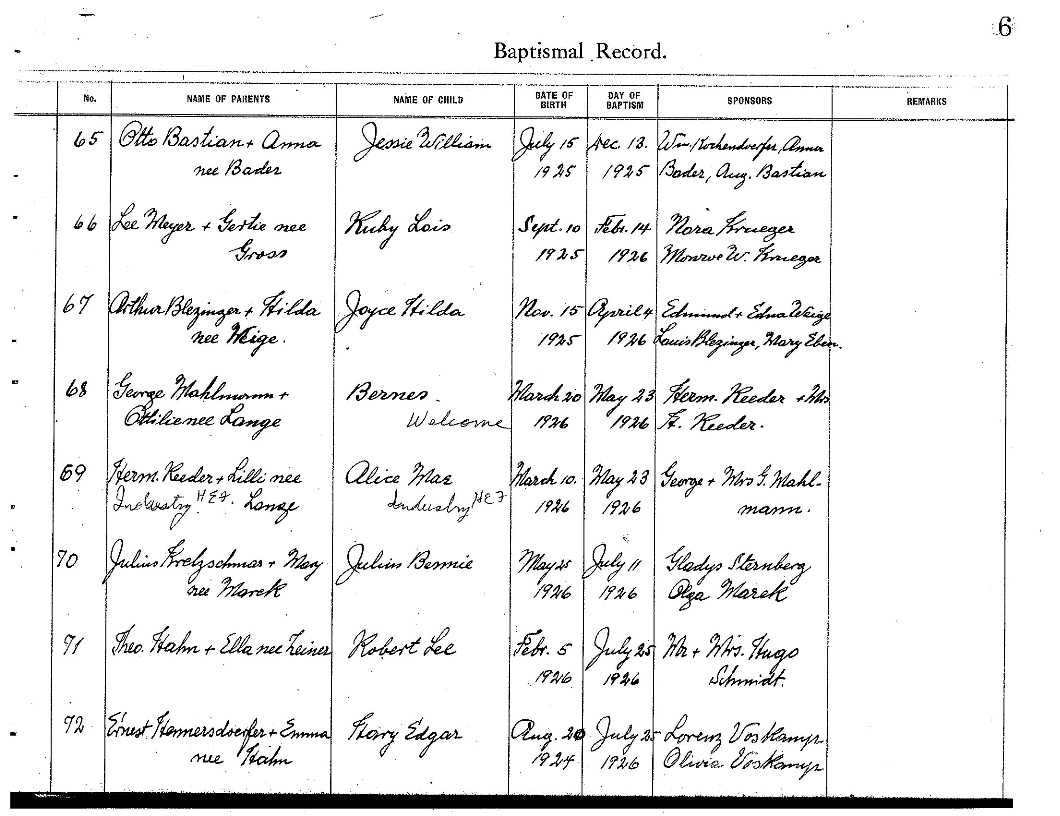 6
Baptismal Record.
No. NAME OF PARENTS NAME OF CHILD DATE OF BIRTH DAY OF BAPTISM SPONSORS REMARKS
65 Otto Bastian + Anna Jessie William July 15 Dec. 13. Wm. Kochendoerfer, Anna
nee Bader 1925 1925 Bader, Aug. Bastian
66 Lee Meyer + Gertie nee Ruby Lois Sept. 10 Febr. 14 Nora Krueger
Gross 1925 1926 Monroe W. Krueger
67 Arthur Blezinger + Hilda Joyce Hilda Nov. 15 April 4 Edmund + Edna Weige
nee Weige. 1925 1926 Louis Blezinger, Mary Eben.
68 George Mahlmann + Bernes March 20 May 23 Herm. Reeder + Mrs
Ottilie nee Lange Welcome 1926 1926 H. Reeder.
69 Herm. Reeder + Lilli nee Alice Mae March 10. May 23 George + Mrs G. Mahl-
Industry H.E.F. Lange Industry HEF 1926 1926 mann.
70 Julius Kretzschmar + Mary Julius Bennie May 25 July 11 Gladys Sternberg
nee Marek 1926 1926 Olga Marek
71 Theo. Hahn + Ella nee Zeiner Robert Lee Febr. 5 July 25 Mr + Mrs. Hugo
1926 1926 Schmidt.
72 Ernest Hamersdoerfer + Emma Hary Edgar Aug. 20 July 25 Lorenz Voskamp
nee Hahn 1924 1926 Olivia Voskamp